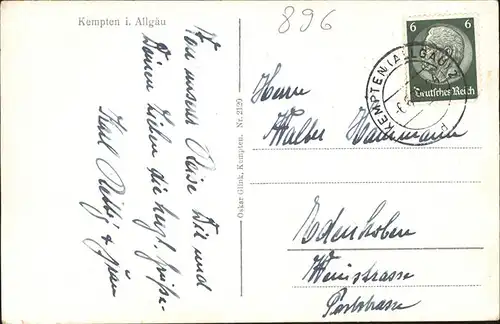 Kempten i. Allgäu
896
Von unserer Reise Dir und
Deinen Lieben die herzl. Grüße
Karl & Frau
Oskar Glink, Kempten. Nr. 2129
6 6
Deutsches Reich
KEMPTEN (ALLGÄU) 2
Herrn
Walter
Edenhoben
Weinstrasse
Poststrasse